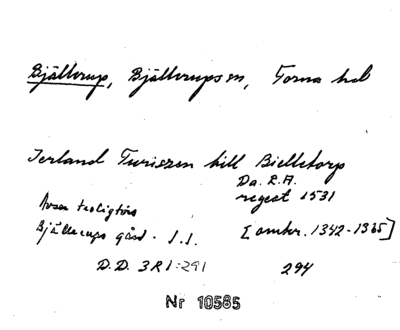 Bjällerup, Bjällerups sn, Torna hd
Jerland Turiszon till Bielletorp
Da. R.A.
regest 1531
Avser troligtvis
Bjällerups gård. S.S.
[omkr. 1342-1365]
D.D. 3R1:291
294
Nr 10585